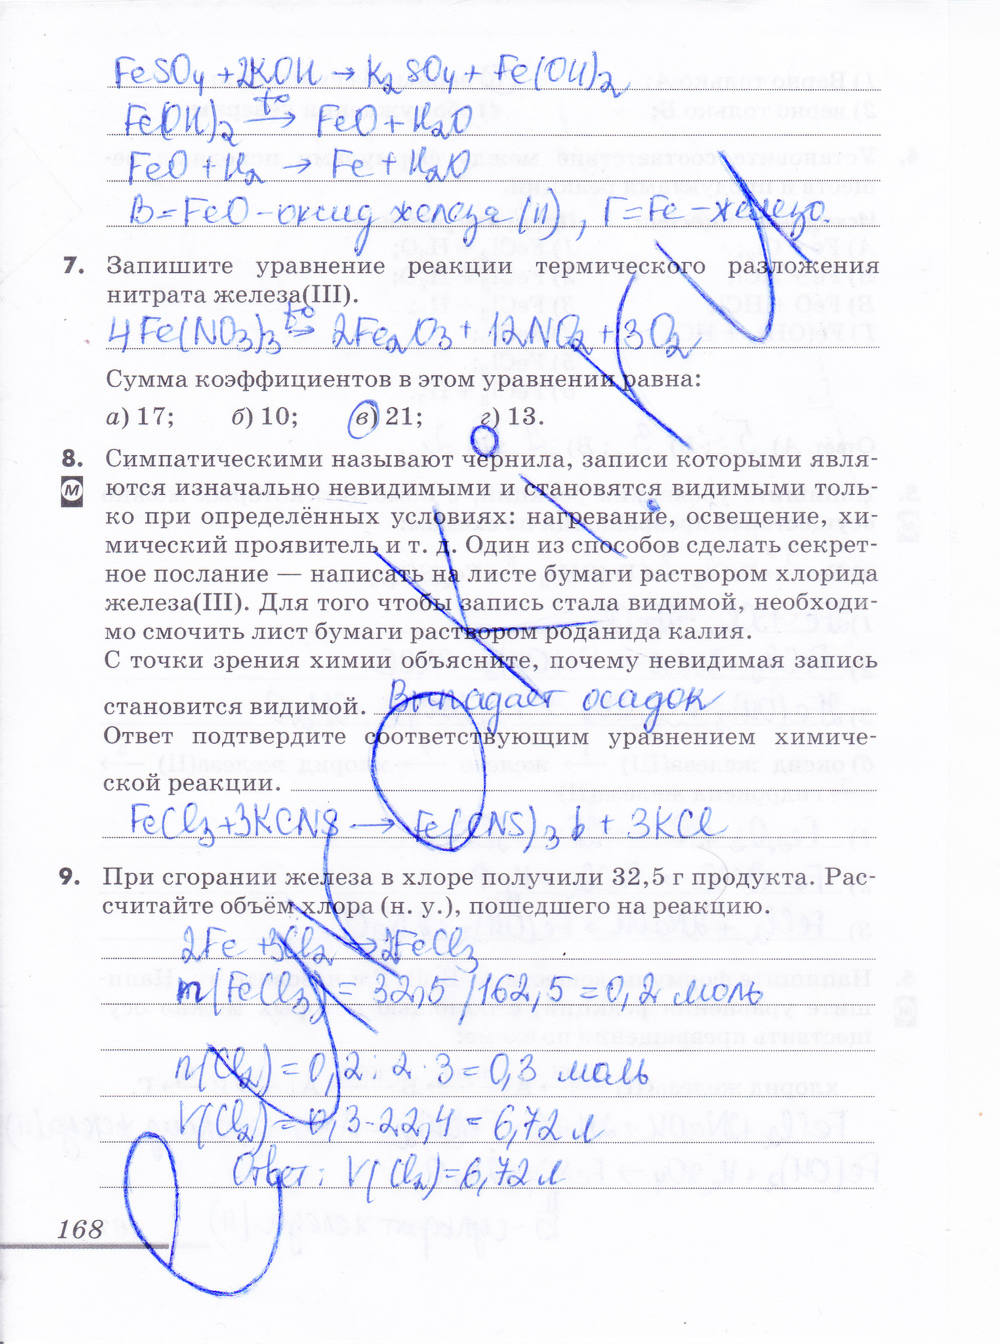 FeSO₄ + 2KOH → K₂SO₄ + Fe(OH)₂
Fe(OH)₂ t° → FeO + H₂O
FeO + H₂ → Fe + H₂O
В = FeO - оксид железа (II), Г = Fe - железо.
7. Запишите уравнение реакции термического разложения
нитрата железа(III).
4Fe(NO₃)₃ t° → 2Fe₂O₃ + 12NO₂ + 3O₂
Сумма коэффициентов в этом уравнении равна:
а) 17; б) 10; в) 21; г) 13.
8. Симпатическими называют чернила, записи которыми явля-
М ются изначально невидимыми и становятся видимыми толь-
ко при определённых условиях: нагревание, освещение, хи-
мический проявитель и т. д. Один из способов сделать секрет-
ное послание — написать на листе бумаги раствором хлорида
железа(III). Для того чтобы запись стала видимой, необходи-
мо смочить лист бумаги раствором роданида калия.
С точки зрения химии объясните, почему невидимая запись
становится видимой. Выпадает осадок
Ответ подтвердите соответствующим уравнением химиче-
ской реакции.
FeCl₃ + 3KCNS → Fe(CNS)₃ ↓ + 3KCl
9. При сгорании железа в хлоре получили 32,5 г продукта. Рас-
считайте объём хлора (н. у.), пошедшего на реакцию.
2Fe + 3Cl₂ → 2FeCl₃
n(FeCl₃) = 32,5 / 162,5 = 0,2 моль
n(Cl₂) = 0,2 : 2 · 3 = 0,3 моль
V(Cl₂) = 0,3 · 22,4 = 6,72 л
Ответ: V(Cl₂) = 6,72 л
168